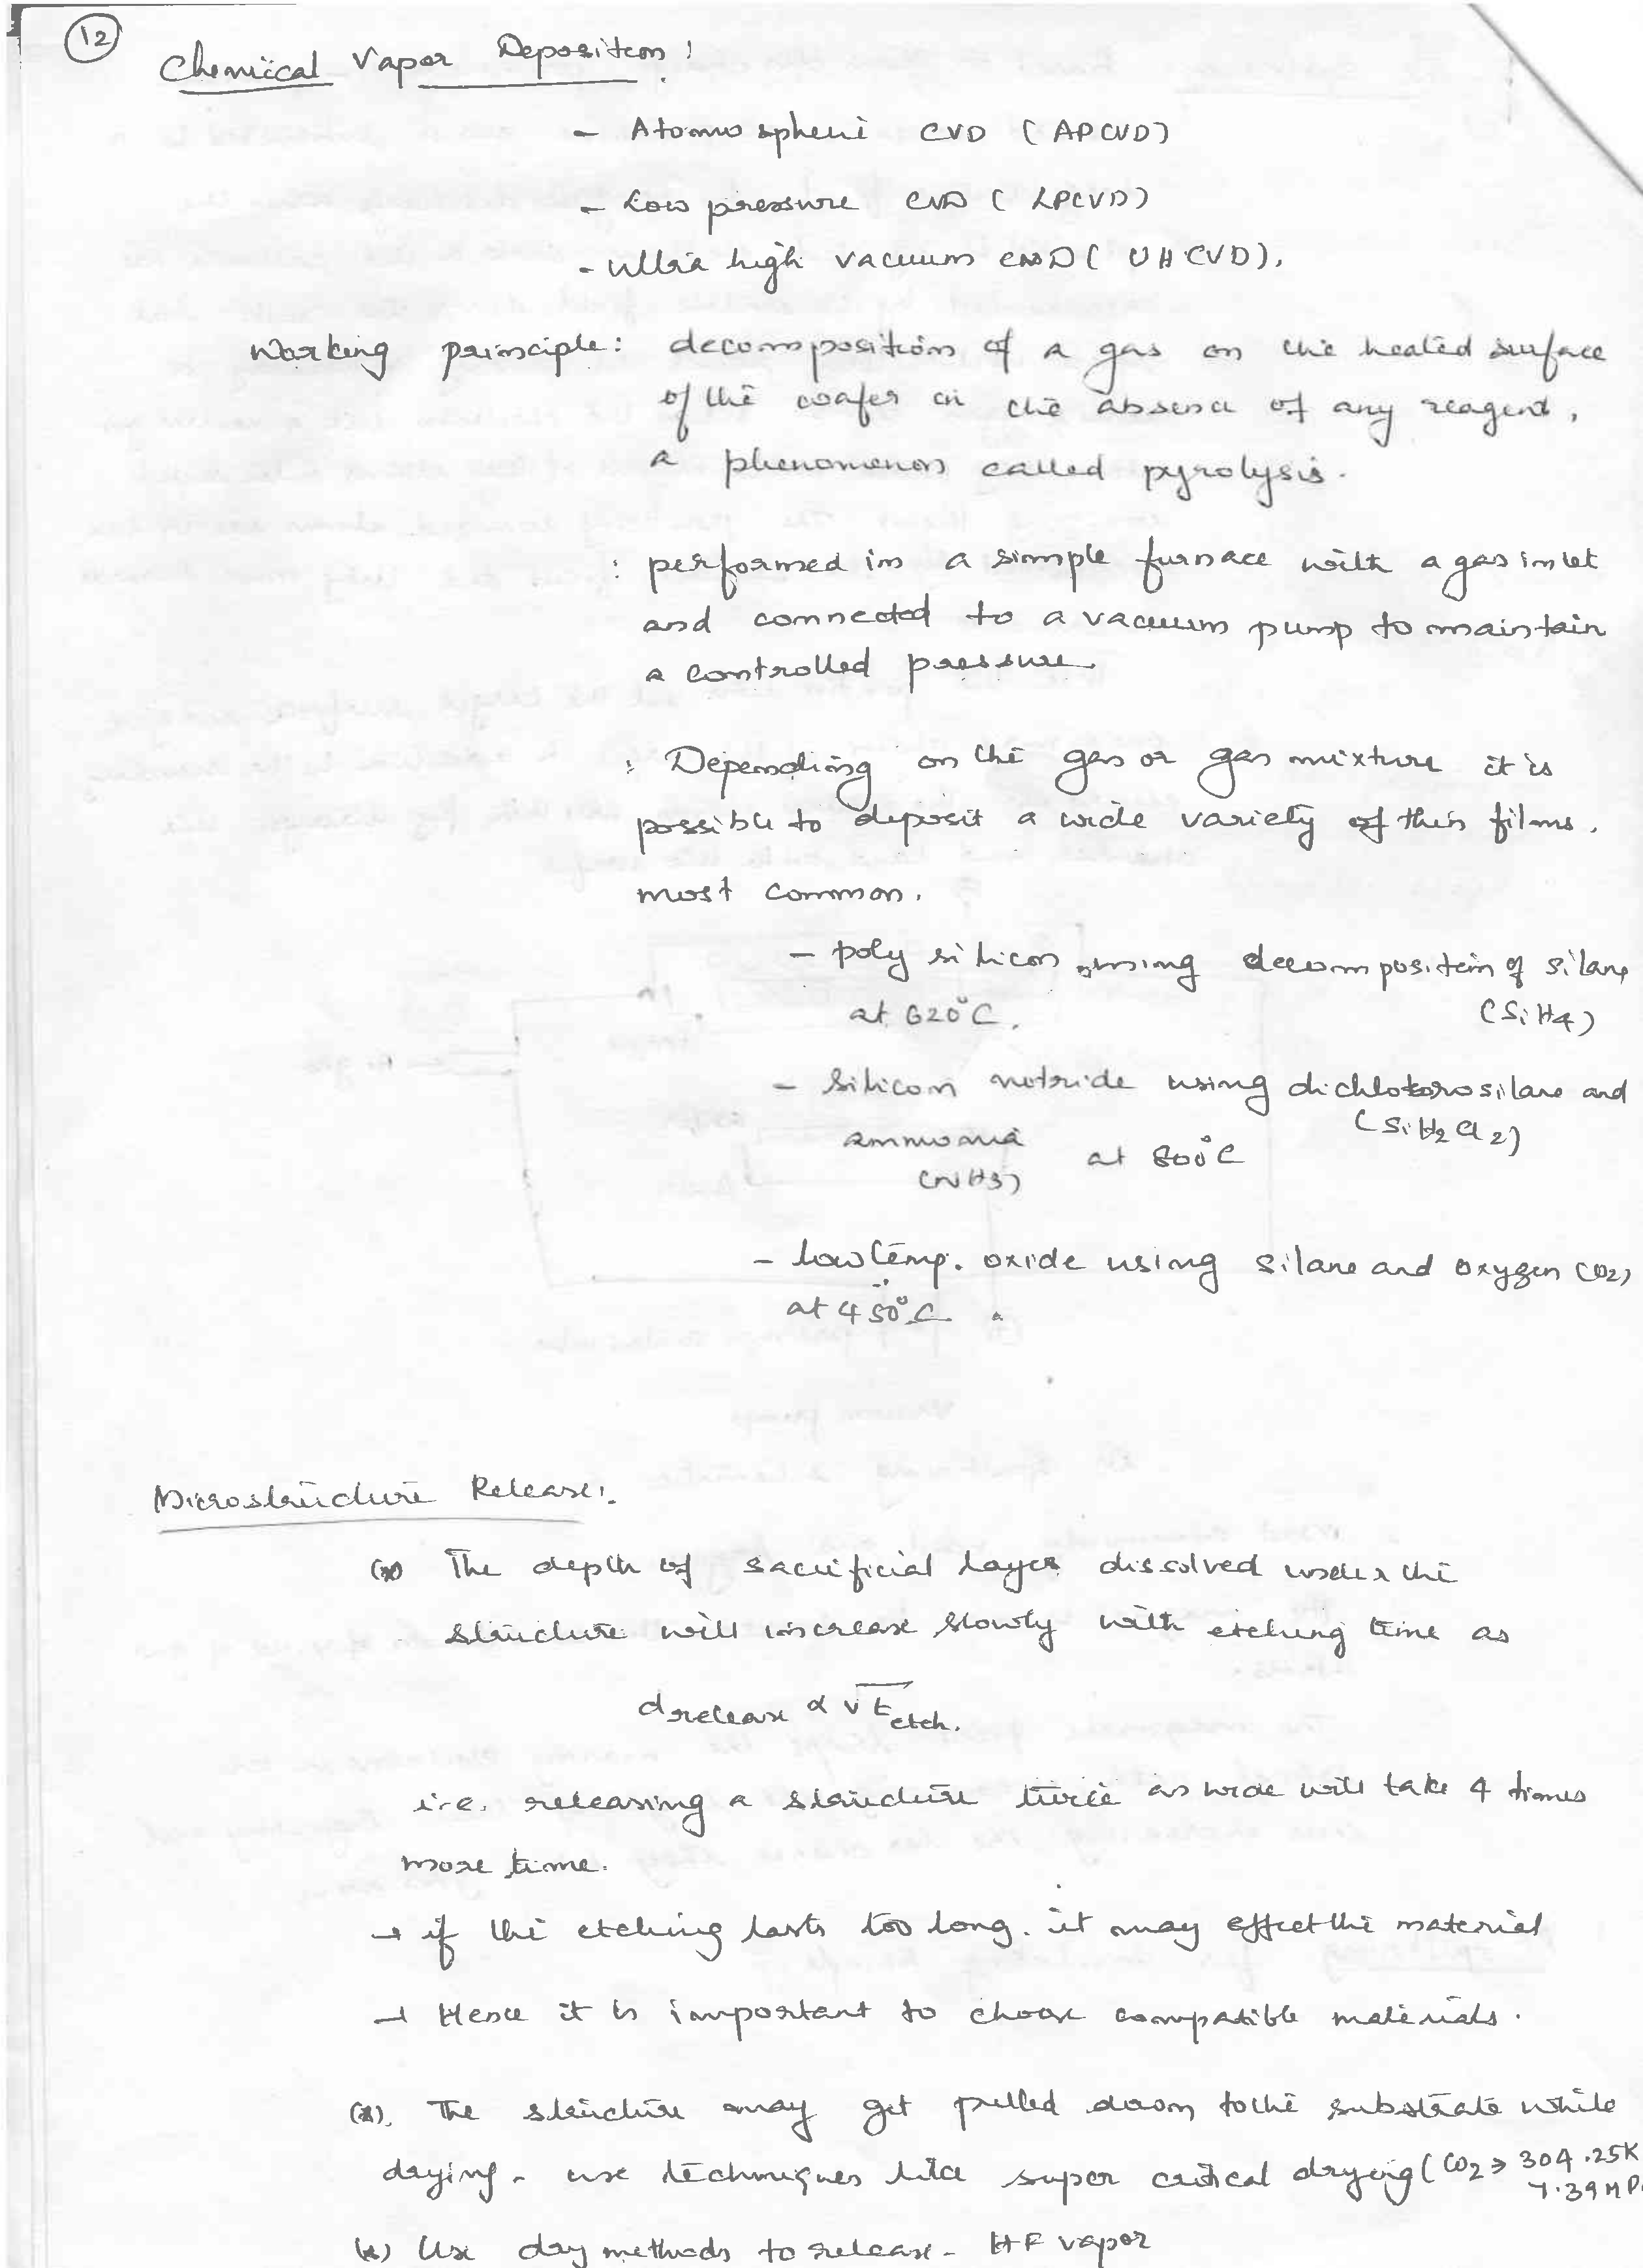 12
Chemical Vapor Deposition:
- Atomospheri CVD (APCVD)
- Low pressure CVD (LPCVD)
- Ultra high vacuum CVD (UHCVD).
Working principle: decomposition of a gas on the heated surface
of the wafer in the absence of any reagent,
a phenomenon called pyrolysis.
: performed in a simple furnace with a gas inlet
and connected to a vacuum pump to maintain
a controlled pressure.
: Depending on the gas or gas mixture it is
possible to deposit a wide variety of thin films.
most common.
- poly silicon using decomposition of silane
at 620°C. (SiH4)
- Silicon nitride using dichlorosilane and
(SiH2Cl2)
ammonia at 800°C
(NH3)
- Low temp. oxide using silane and oxygen (O2)
at 450°C.
Microstructure Release:
(*) The depth of sacrificial layer dissolved under the
structure will increase slowly with etching time as
d release ∝ √t etch.
i.e. releasing a structure twice as wide will take 4 times
more time.
→ if the etching lasts too long. it may effect the material
→ Hence it is important to choose compatible materials.
(*). The structure may get pulled down to the substrate while
drying - use techniques like super critical drying (CO2 → 304.25K
7.39 MP
(*) Use dry methods to release - HF vapor